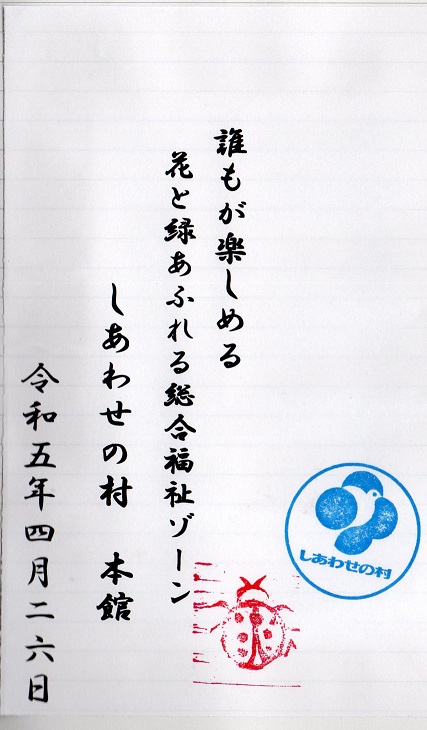 誰もが楽しめる
花と緑あふれる総合福祉ゾーン
しあわせの村　本館
令和五年四月二六日
しあわせの村